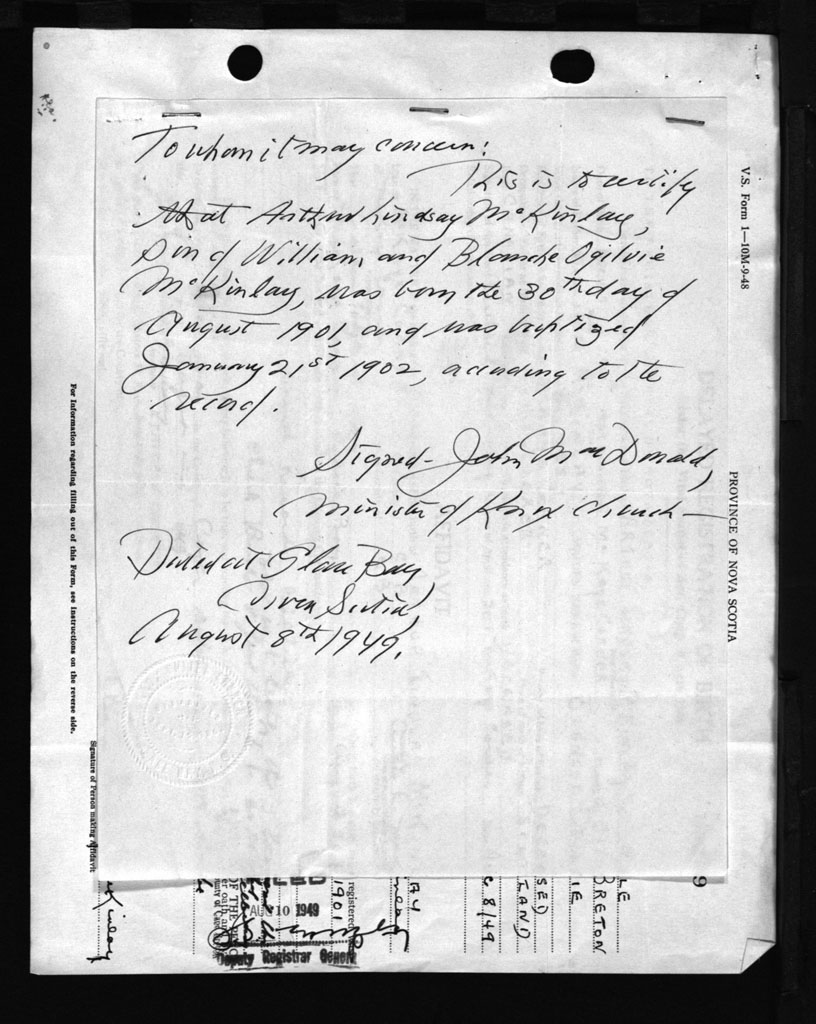 To whom it may concern:
This is to certify
that Arthur Lindsay McKinlay,
Son of William, and Blanche Ogilvie
McKinlay, was born the 30th day of
August 1901, and was baptized
January 21st 1902, according to the
record.
Signed - John MacDonald,
Minister of Knox Church -
Dated at Glace Bay,
Nova Scotia,
August 8th 1949.
V.S. Form 1—10M-9-48
PROVINCE OF NOVA SCOTIA
For Information regarding filling out of this Form, see Instructions on the reverse side.
Signature of Person making Affidavit
Kinlay
registered
1901
AUG 10 1949
Deputy Registrar General
OF THE
AY
G 8/49
LAND
SED
IE
BRETON
LE
9